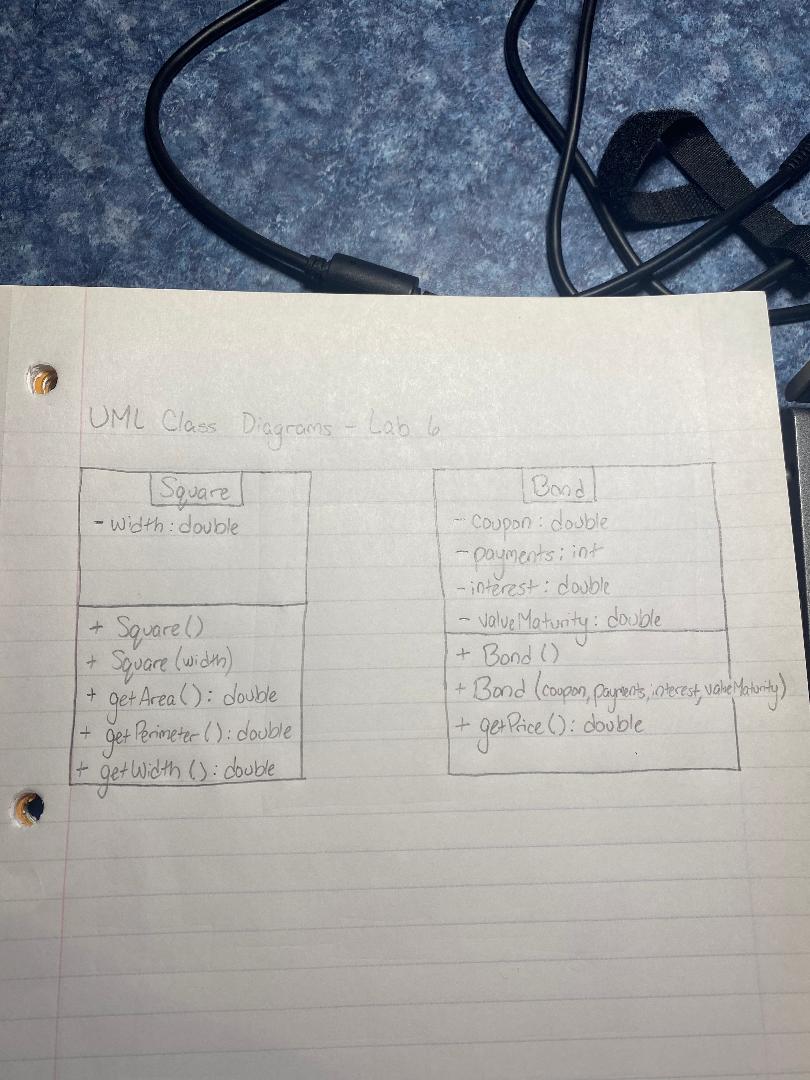 UML Class Diagrams - Lab 6
Square
- width : double
+ Square ()
+ Square (width)
+ getArea () : double
+ getPerimeter () : double
+ getWidth () : double
Bond
- coupon : double
- payments : int
- interest : double
- valueMaturity : double
+ Bond ()
+ Bond (coupon, payments, interest, valueMaturity)
+ getPrice () : double